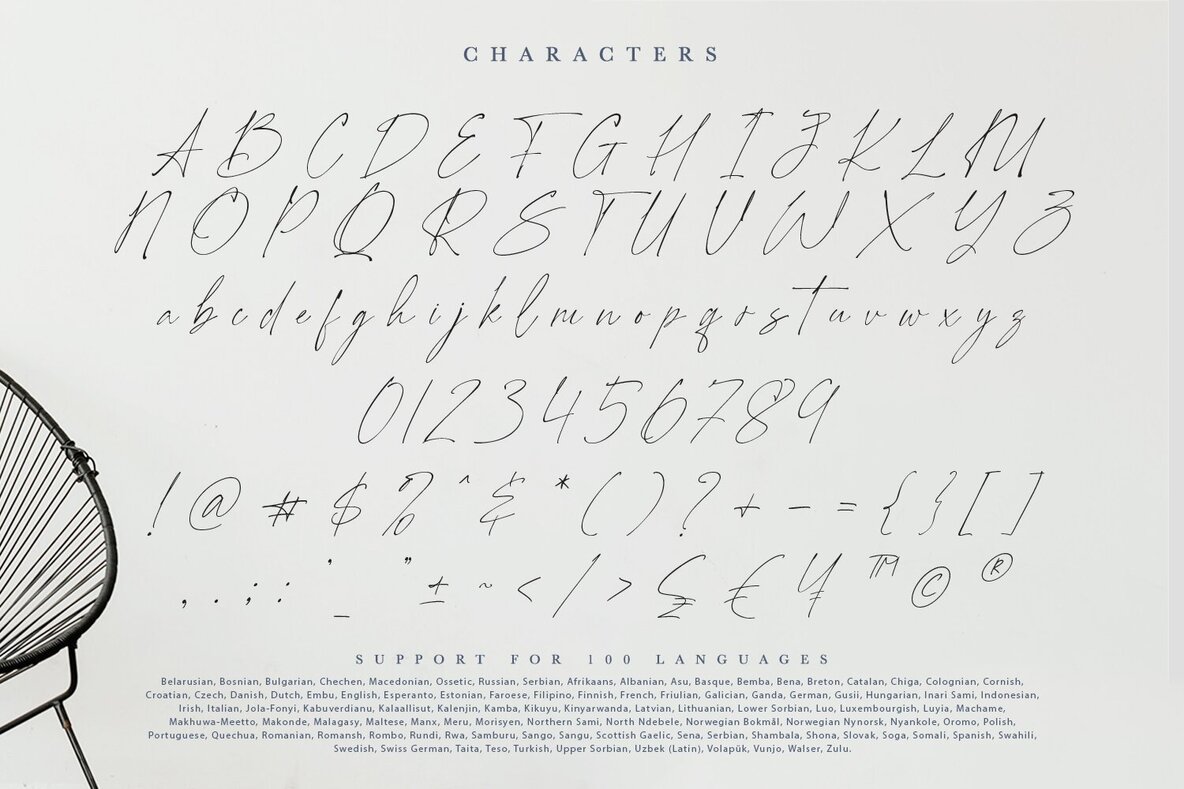 CHARACTERS
A B C D E F G H I J K L M
N O P Q R S T U V W X Y Z
a b c d e f g h i j k l m n o p q r s t u v w x y z
0 1 2 3 4 5 6 7 8 9
! @ # $ % ^ & * ( ) ? + - = { } [ ]
, . ; : ' _ " ± ~ < / > £ € ¥ ™ © ®
SUPPORT FOR 100 LANGUAGES
Belarusian, Bosnian, Bulgarian, Chechen, Macedonian, Ossetic, Russian, Serbian, Afrikaans, Albanian, Asu, Basque, Bemba, Bena, Breton, Catalan, Chiga, Colognian, Cornish,
Croatian, Czech, Danish, Dutch, Embu, English, Esperanto, Estonian, Faroese, Filipino, Finnish, French, Friulian, Galician, Ganda, German, Gusii, Hungarian, Inari Sami, Indonesian,
Irish, Italian, Jola-Fonyi, Kabuverdianu, Kalaallisut, Kalenjin, Kamba, Kikuyu, Kinyarwanda, Latvian, Lithuanian, Lower Sorbian, Luo, Luxembourgish, Luyia, Machame,
Makhuwa-Meetto, Makonde, Malagasy, Maltese, Manx, Meru, Morisyen, Northern Sami, North Ndebele, Norwegian Bokmål, Norwegian Nynorsk, Nyankole, Oromo, Polish,
Portuguese, Quechua, Romanian, Romansh, Rombo, Rundi, Rwa, Samburu, Sango, Sangu, Scottish Gaelic, Sena, Serbian, Shambala, Shona, Slovak, Soga, Somali, Spanish, Swahili,
Swedish, Swiss German, Taita, Teso, Turkish, Upper Sorbian, Uzbek (Latin), Volapük, Vunjo, Walser, Zulu.